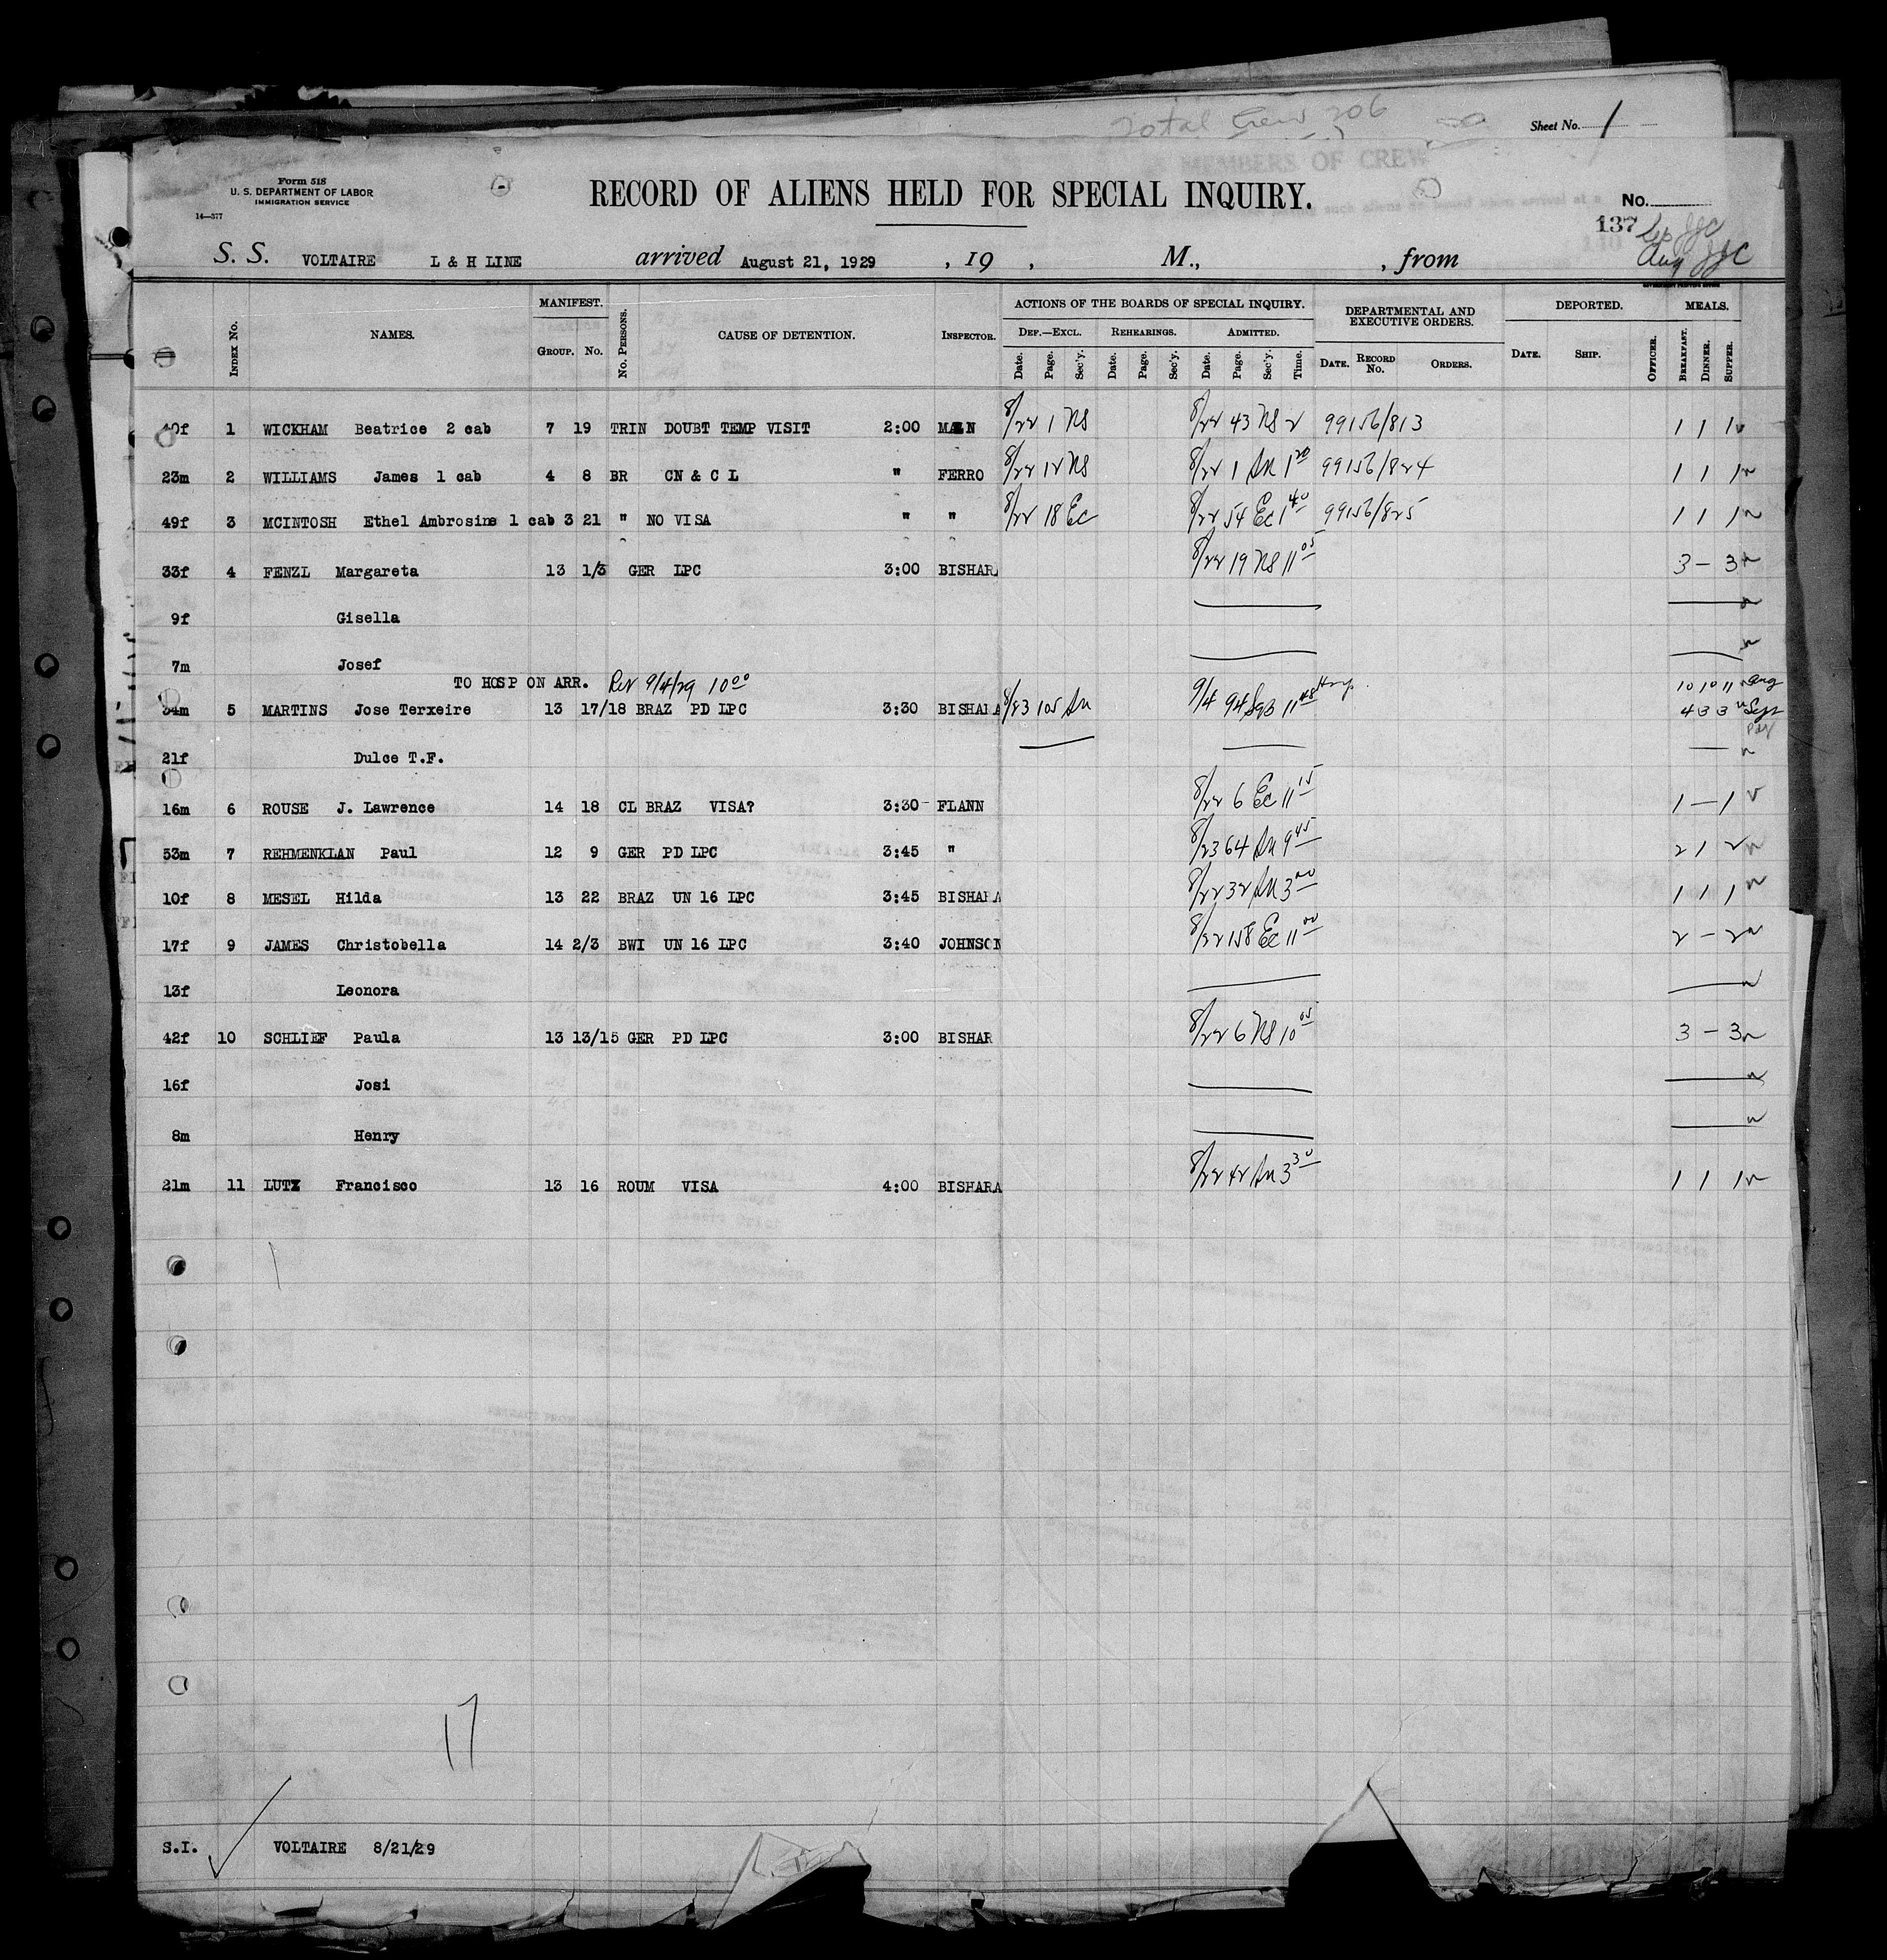 Total Crew 206
Sheet No. 1
MEMBERS OF CREW
Form 518
U. S. DEPARTMENT OF LABOR
IMMIGRATION SERVICE
14—377
RECORD OF ALIENS HELD FOR SPECIAL INQUIRY.
No.
137
S. S. VOLTAIRE L & H LINE arrived August 21, 1929 , 19 , M., , from
Aug JJC
Index No. NAMES. MANIFEST. Group. No. No. Persons. CAUSE OF DETENTION. Inspector. ACTIONS OF THE BOARDS OF SPECIAL INQUIRY. DEPARTMENTAL AND EXECUTIVE ORDERS. DEPORTED. MEALS.
Def.—Excl. Rehearings. Admitted.
Date. Page. Sec'y. Date. Page. Sec'y. Date. Page. Sec'y. Time. Date. Record No. Orders. Date. Ship. Officer. Breakfast. Dinner. Supper.
40f 1 WICKHAM Beatrice 2 cab 7 19 TRIN DOUBT TEMP VISIT 2:00 8/22 1 NS 8/22 43 NS 2 99156/813 1 1 1
23m 2 WILLIAMS James 1 cab 4 8 BR CN & C L " FERRO 8/22 12 NS 8/22 1 An 1 20 99156/824 1 1 1
49f 3 MCINTOSH Ethel Ambrosine 1 cab 3 21 " NO VISA " " 8/22 18 Ec 8/22 54 Ec 1 40 99156/825 1 1 1
33f 4 FENZL Margareta 13 1/3 GER LPC 3:00 BISHARA 8/22 19 NS 11 05 3 – 3
9f Gisella
7m Josef
TO HOSP ON ARR. Rev 9/4/29 10 00 10 10 11 Aug
34m 5 MARTINS Jose Terxeire 13 17/18 BRAZ PD LPC 3:30 BISHARA 8/23 105 An 9/4 94 11 48 Hosp. 4 3 3 Sept
21f Dulce T.F.
16m 6 ROUSE J. Lawrence 14 18 CL BRAZ VISA? 3:30 FLANN 8/22 6 Ec 11 15 1 – 1
53m 7 REHMENKLAN Paul 12 9 GER PD LPC 3:45 " 8/23 64 An 9 45 2 1 2
10f 8 MESEL Hilda 13 22 BRAZ UN 16 LPC 3:45 BISHARA 8/22 32 An 3 00 1 1 1
17f 9 JAMES Christobella 14 2/3 BWI UN 16 LPC 3:40 JOHNSON 8/22 158 Ec 11 00 2 – 2
13f Leonora
42f 10 SCHLIEF Paula 13 13/15 GER PD LPC 3:00 BISHAR 8/22 6 NS 10 05 3 – 3
16f Josi
8m Henry
21m 11 LUTZ Francisco 13 16 ROUM VISA 4:00 BISHARA 8/22 42 An 3 30 1 1 1
17
S.I. VOLTAIRE 8/21/29